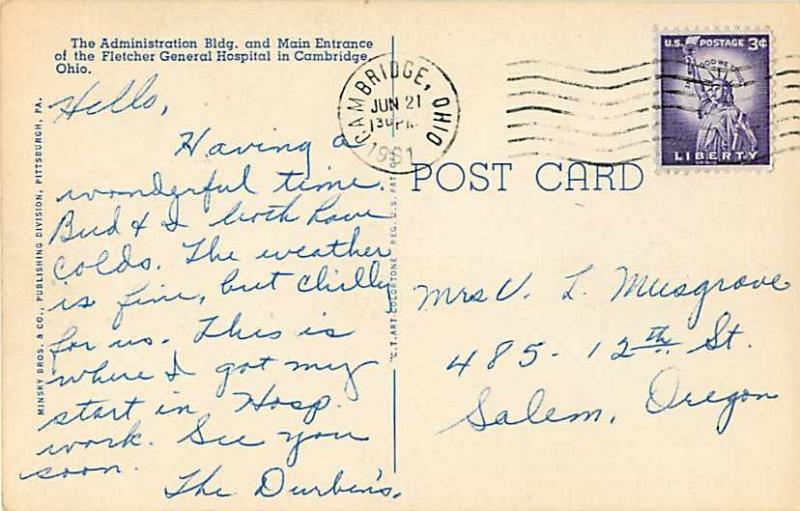 The Administration Bldg. and Main Entrance
of the Fletcher General Hospital in Cambridge,
Ohio.
Hello,
Having a
wonderful time.
Bud & I both have
colds. The weather
is fine, but chilly
for us. This is
where I got my
start in Hosp.
work. See you
soon.
The Durbin's.
MINSKY BROS. & CO., PUBLISHING DIVISION, PITTSBURGH, PA.
C.T. ART-COLORTONE REG. U.S. PAT. OFF.
CAMBRIDGE, OHIO
JUN 21
130 PM
1961
U.S. POSTAGE 3¢
IN GOD WE TRUST
LIBERTY
POST CARD
Mrs V. L. Musgrove
485-12th. St.
Salem, Oregon